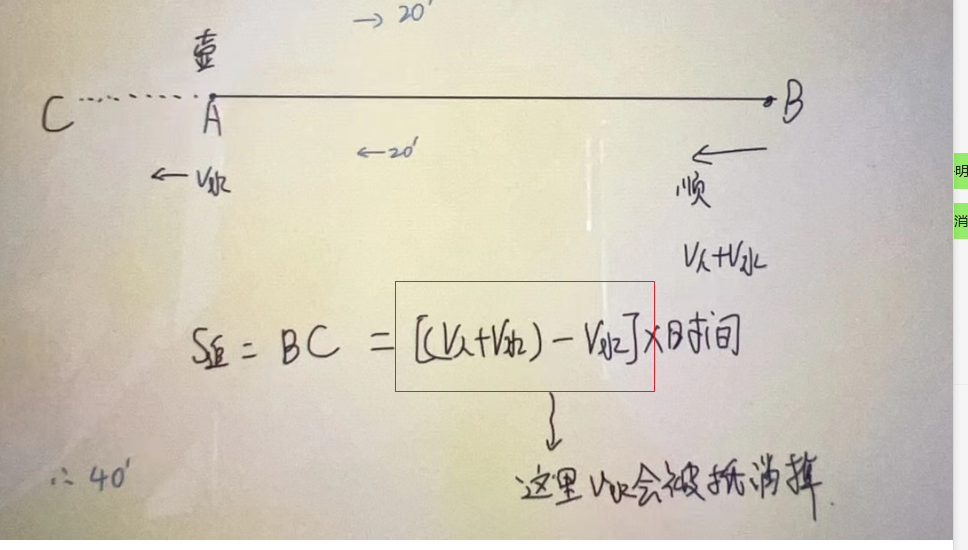 → 20'
壶
C A B
← 20'
← V水
顺
V人+V水
S追 = BC = [(V人+V水) - V水] × 时间
这里V水会被抵消掉.
∴ 40'
明
消